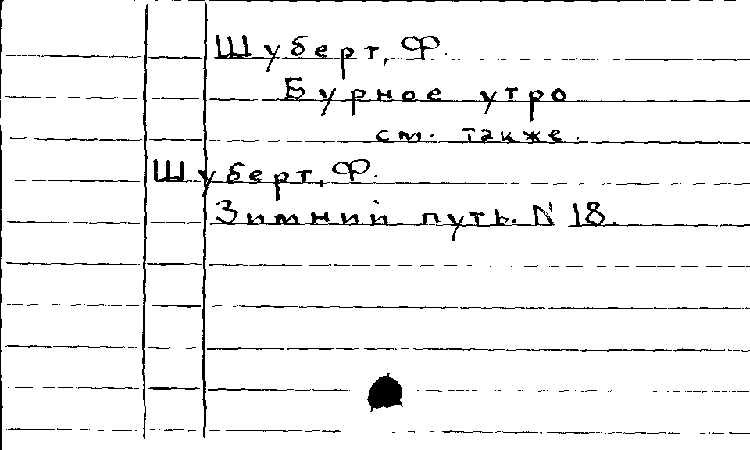 Шуберт, Ф.
Бурное утро
см. также.
Шуберт, Ф.
Зимний путь. N 18.